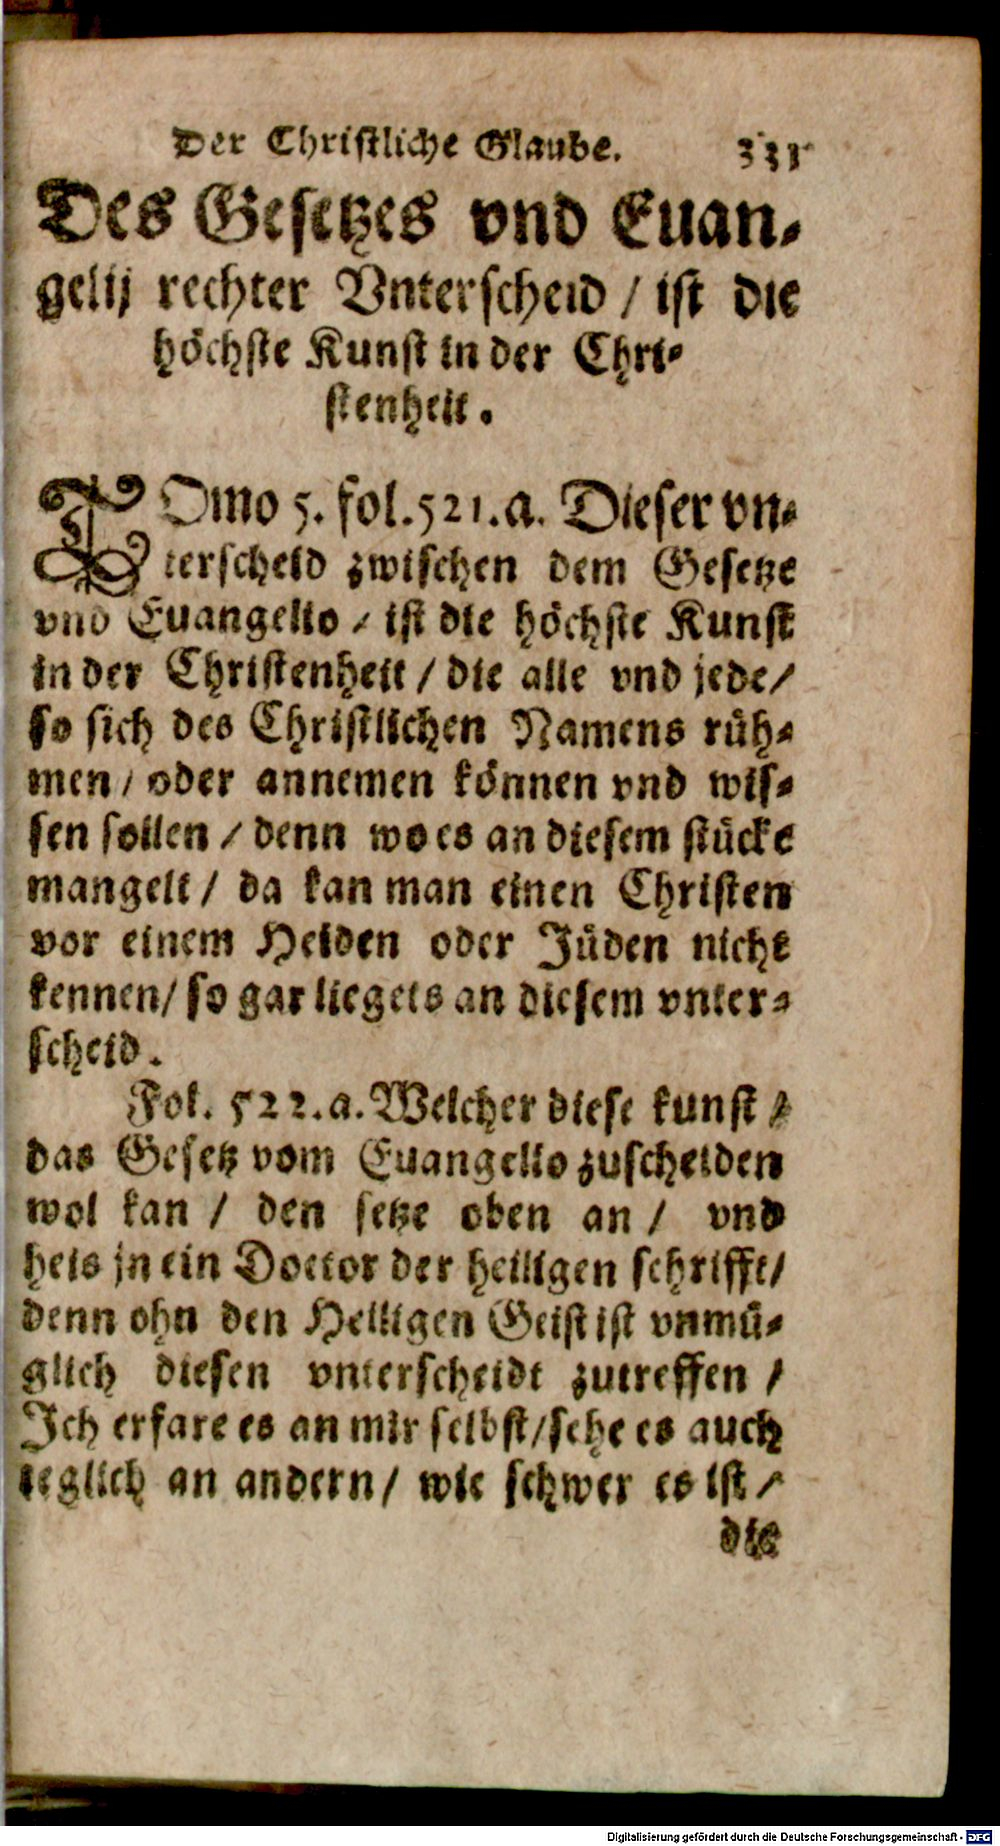 Der Christliche Glaube. 331
Des Gesetzes vnd Euan-
gelij rechter Vnterscheid / ist die
höchste Kunst in der Chri-
stenheit.
TOmo 5. fol. 521. a. Dieser vn-
terscheid zwischen dem Gesetze
vnd Euangelio / ist die höchste Kunst
in der Christenheit / die alle vnd jede /
so sich des Christlichen Namens rüh-
men / oder annemen können vnd wis-
sen sollen / denn wo es an diesem stücke
mangelt / da kan man einen Christen
vor einem Heiden oder Jüden nicht
kennen / so gar liegets an diesem vnter-
scheid.
Fol. 522. a. Welcher diese kunst /
das Gesetz vom Euangelio zuscheiden
wol kan / den setze oben an / vnd
heis jn ein Doctor der heiligen schrifft /
denn ohn den Heiligen Geist ist vnmü-
glich diesen vnterscheidt zutreffen /
Ich erfare es an mir selbst / sehe es auch
teglich an andern / wie schwer es ist /
die
Digitalisierung gefördert durch die Deutsche Forschungsgemeinschaft - DFG